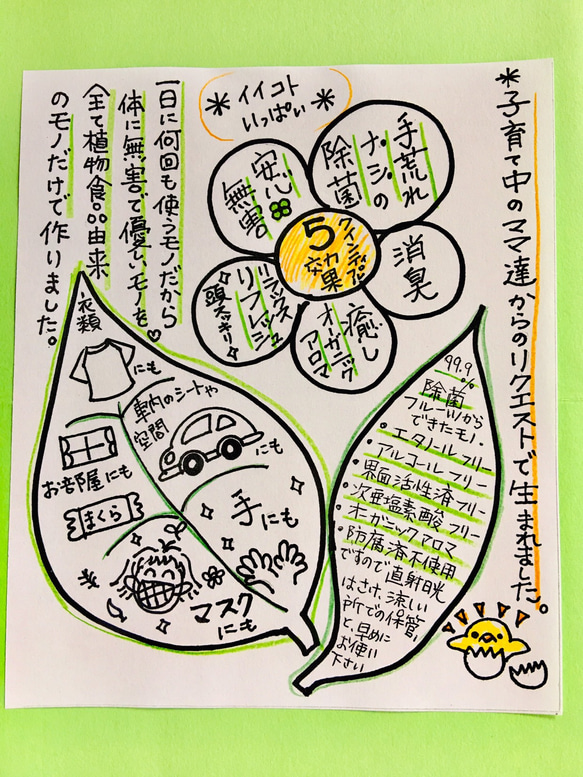 *子育て中のママ達からのリクエストで生まれました。
*イイコト*
いっぱい
手荒れ
ナシの
除菌
安心
無害
5
クインティプル
効果
消臭
リラックス
リフレッシュ
頭スッキリ
癒し
オーガニック
アロマ
一日に何回も使うモノだから
体に無害で優しいモノを♡
全て植物食品由来
のモノだけで作りました。
衣類
にも
車内のシートや
空間
にも
お部屋にも
まくら
手にも
マスク
にも
99.9
%
除菌
フルーツから
できたモノ。
・エタノールフリー
・アルコールフリー
・界面活性済フリー
・次亜塩素酸フリー
・オーガニックアロマ
・防腐済不使用
ですので直射日光
はさけ、涼しい
所での保管
と、早めに
お使い
下さい